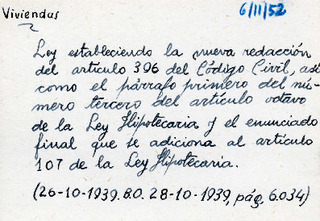 Viviendas
6/11/52
Ley estableciendo la nueva redacción
del artículo 396 del Código Civil, así
como el párrafo primero del nú-
mero tercero del artículo octavo
de la Ley Hipotecaria y el enunciado
final que se adiciona al artículo
107 de la Ley Hipotecaria.
(26-10-1939. B.O. 28-10-1939, pág. 6.034)